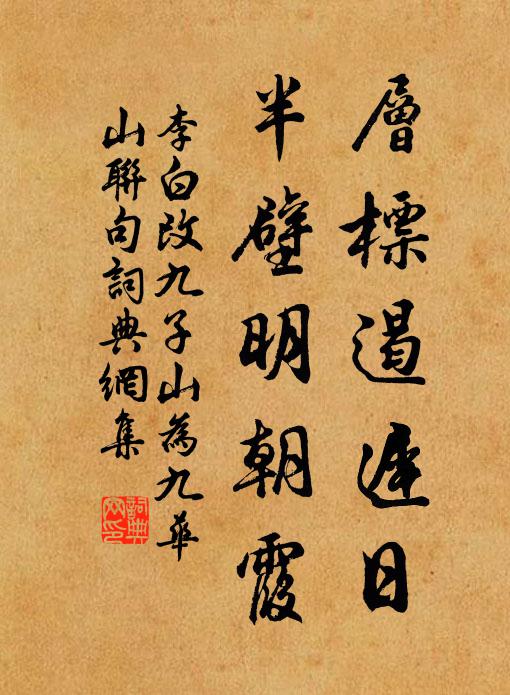 層標遏遲日
半壁明朝霞
李白改九子山為九華
山聯句詞典網集
詞典
網印